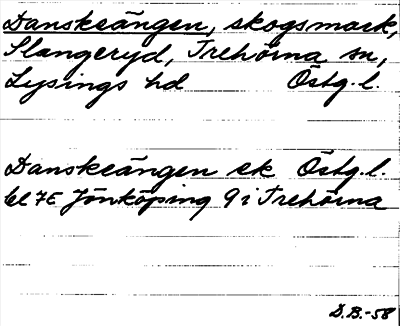 Danskeängen, skogsmark,
Slangeryd, Trehörna sn,
Lysings hd Östg.l.
Danskeängen ek Östg.l.
bl 7E Jönköping 9 i Trehörna
D.B.-58